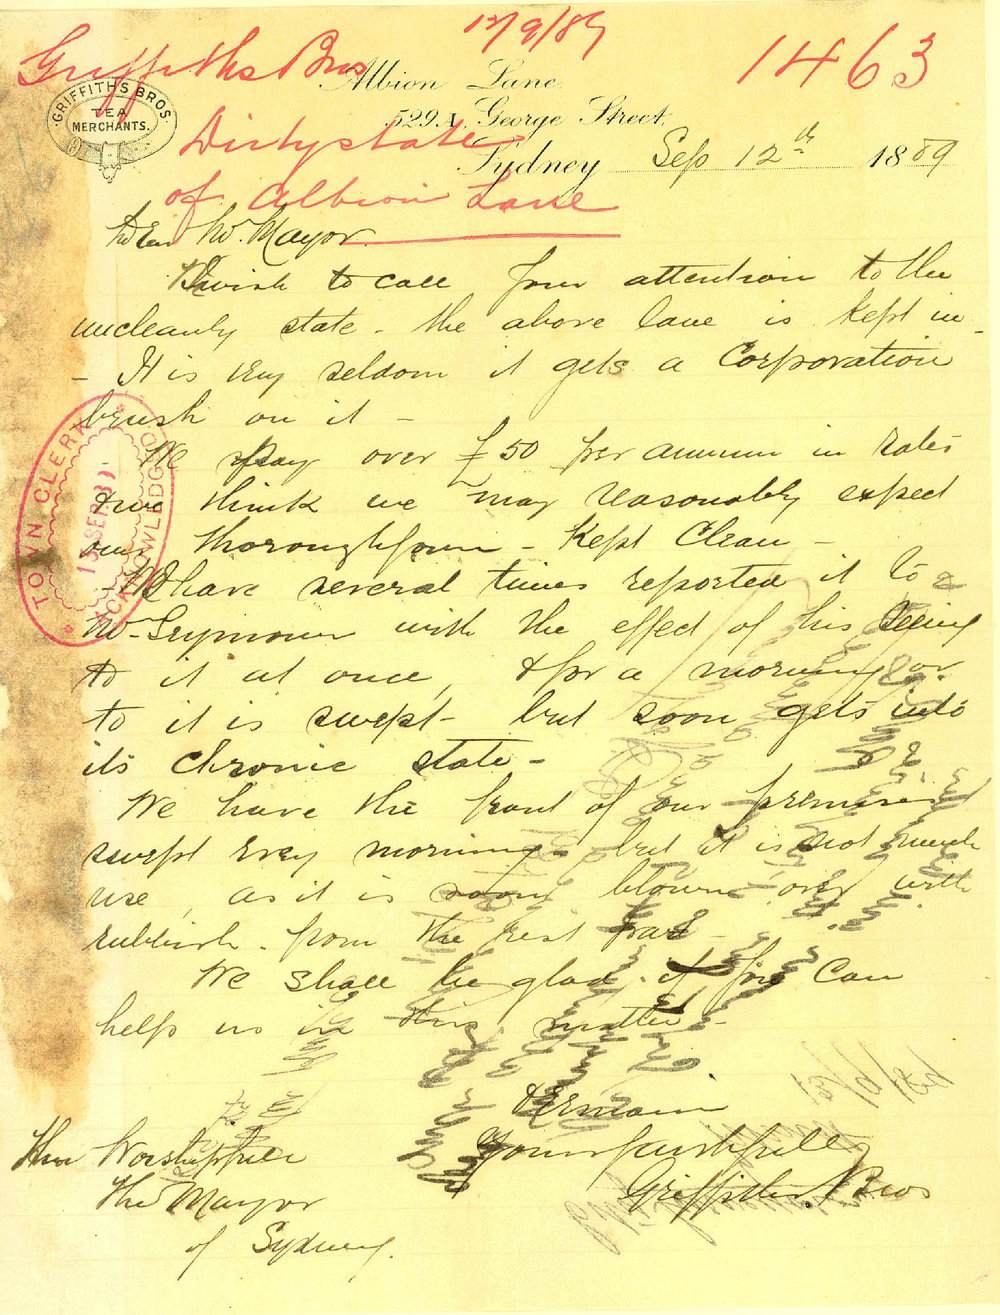 12/9/89
1463
Griffiths Bros
Dirty state
of Albion Lane
GRIFFITHS BROS.
TEA
MERCHANTS.
Albion Lane
529A, George Street,
Sydney Sep 12th 1889
Dear Mr. Mayor
We wish to call your attention to the
uncleanly state - the above lane is kept in -
- It is very seldom it gets a Corporation
brush on it -
We pay over £50 per annum in rates
and think we may reasonably expect
our thoroughfare - Kept Clean -
We have several times reported it to
Mr. Seymour with the effect of his seeing
to it at once, & for a morning or
to it is swept - but soon gets into
its chronic state -
We have the front of our premises
swept every morning - but it is not much
use, as it is soon blown over with
rubbish from the rest part -
We shall be glad if you can
help us in this matter -
We remain
Yours faithfully
Griffiths Bros
The Worshipful
The Mayor
of Sydney.
TOWN CLERK
13 SEP. 89
ACKNOWLEDGED